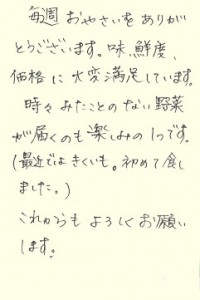 毎週 おやさいを ありが
とうございます。味、鮮度、
価格に大変満足しています。
時々みたことのない野菜
が届くのも楽しみの1つです。
(最近では きくいも。初めて食し
ました。)
これからも よろしくお願い
します。